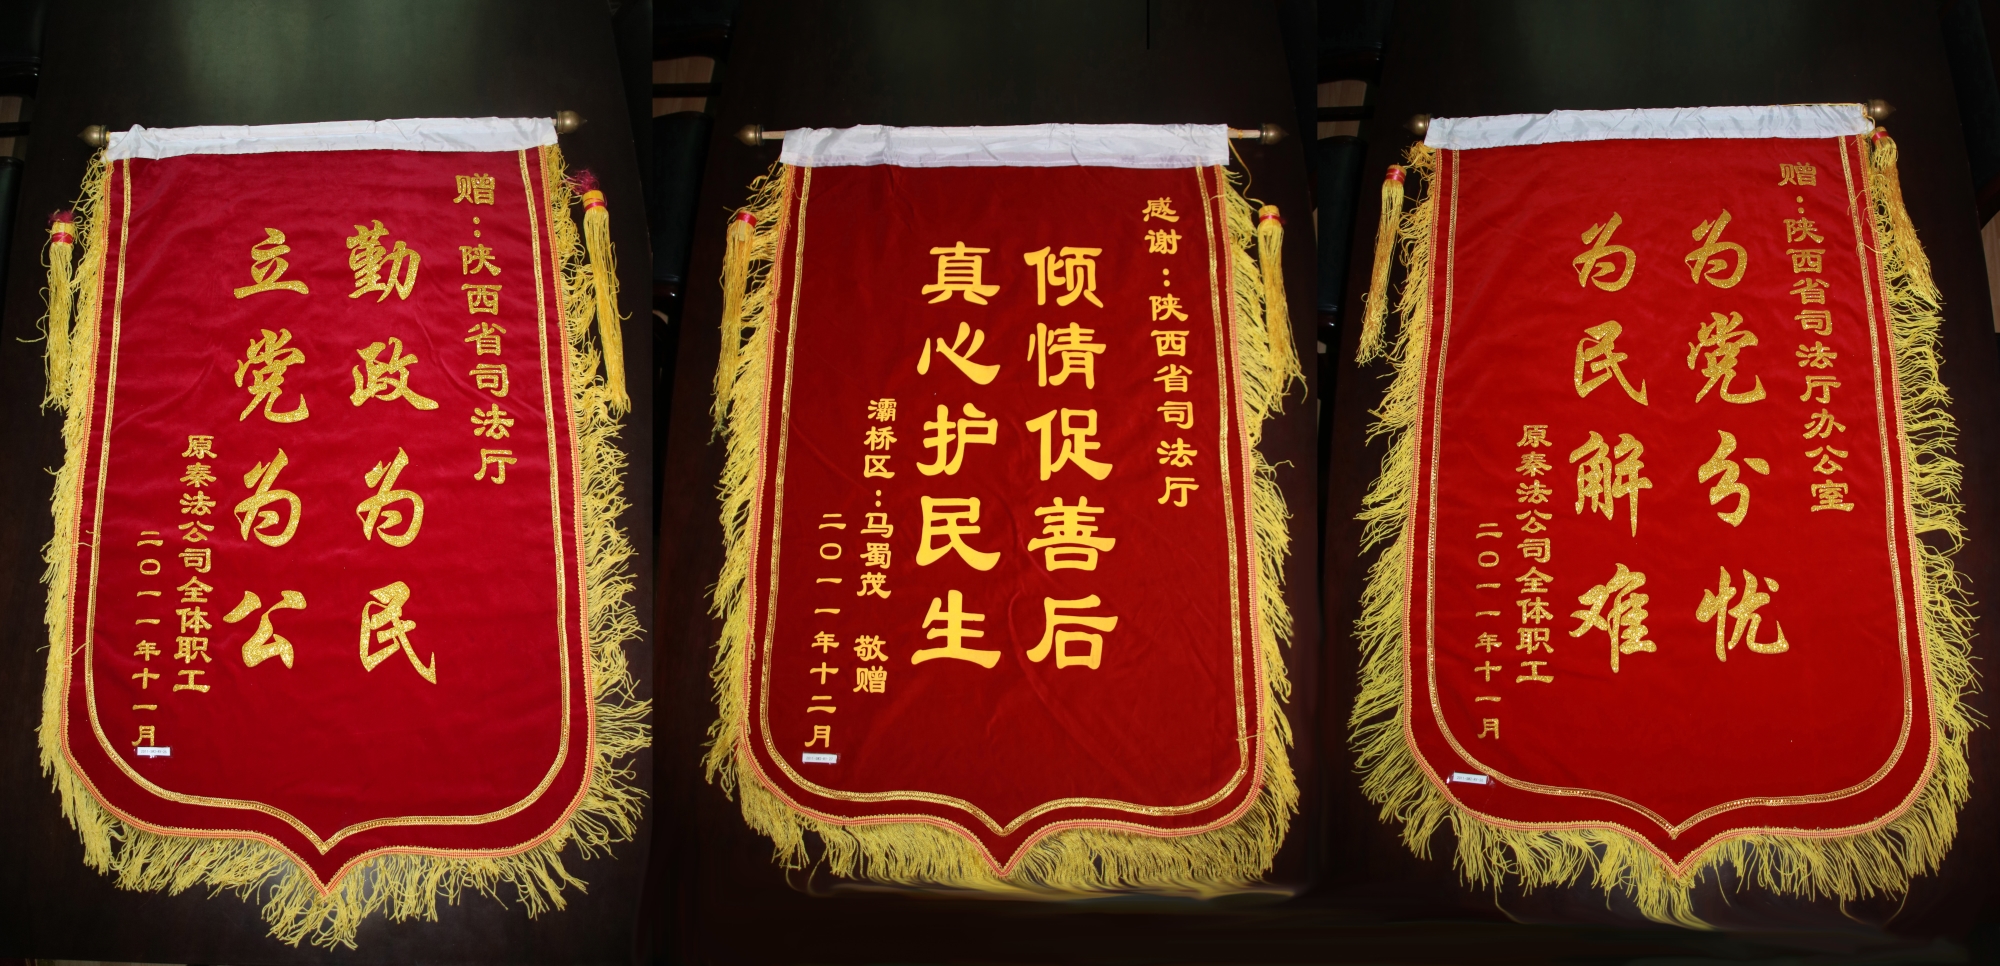 赠：陕西省司法厅
勤政为民
立党为公
原秦法公司全体职工
二〇一一年十一月
感谢：陕西省司法厅
倾情促善后
真心护民生
灞桥区：马蜀茂 敬赠
二〇一一年十二月
赠：陕西省司法厅办公室
为党分忧
为民解难
原秦法公司全体职工
二〇一一年十一月